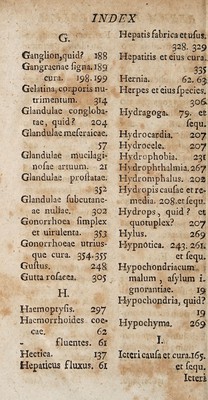 INDEX
G.
Ganglion, quid? 188
Gangraenae signa. 189
cura. 198. 199
Gelatina, corporis nu-
trimentum. 314
Glandulae congloba-
tae, quid? 204
Glandulae meseraicae.
57
Glandulae mucilagi-
nosae artuum. 21
Glandulae prostatae.
352
Glandulae subcutane-
ae nullae. 302
Gonorrhoea simplex
et virulenta. 353
Gonorrhoeae utrius-
que cura. 354. 355
Gustus. 248
Gutta rosacea. 305
H.
Haemoptysis. 297
Haemorrhoides coe-
cae. 62
- fluentes. 61
Hectica. 137
Hepaticus fluxus. 61
Hepatis fabrica et usus.
328. 329
Hepatitis et eius cura.
335
Hernia. 62. 63
Herpes et eius species.
306
Hydragoga. 79. et
sequ.
Hydrocardia. 207
Hydrocele. 207
Hydrophobia. 231
Hydrophthalmia. 267
Hydromphalus. 202
Hydropis causae et re-
media. 208. et sequ.
Hydrops, quid? et
quotuplex? 207
Hylus. 269
Hypnotica. 243. 261.
et sequ.
Hypochondriacum
malum, asylum i.
gnorantiae. 19
Hypochondria, quid?
19
Hypochyma. 269
I.
Icteri causa et cura. 165.
et sequ.
Icteri